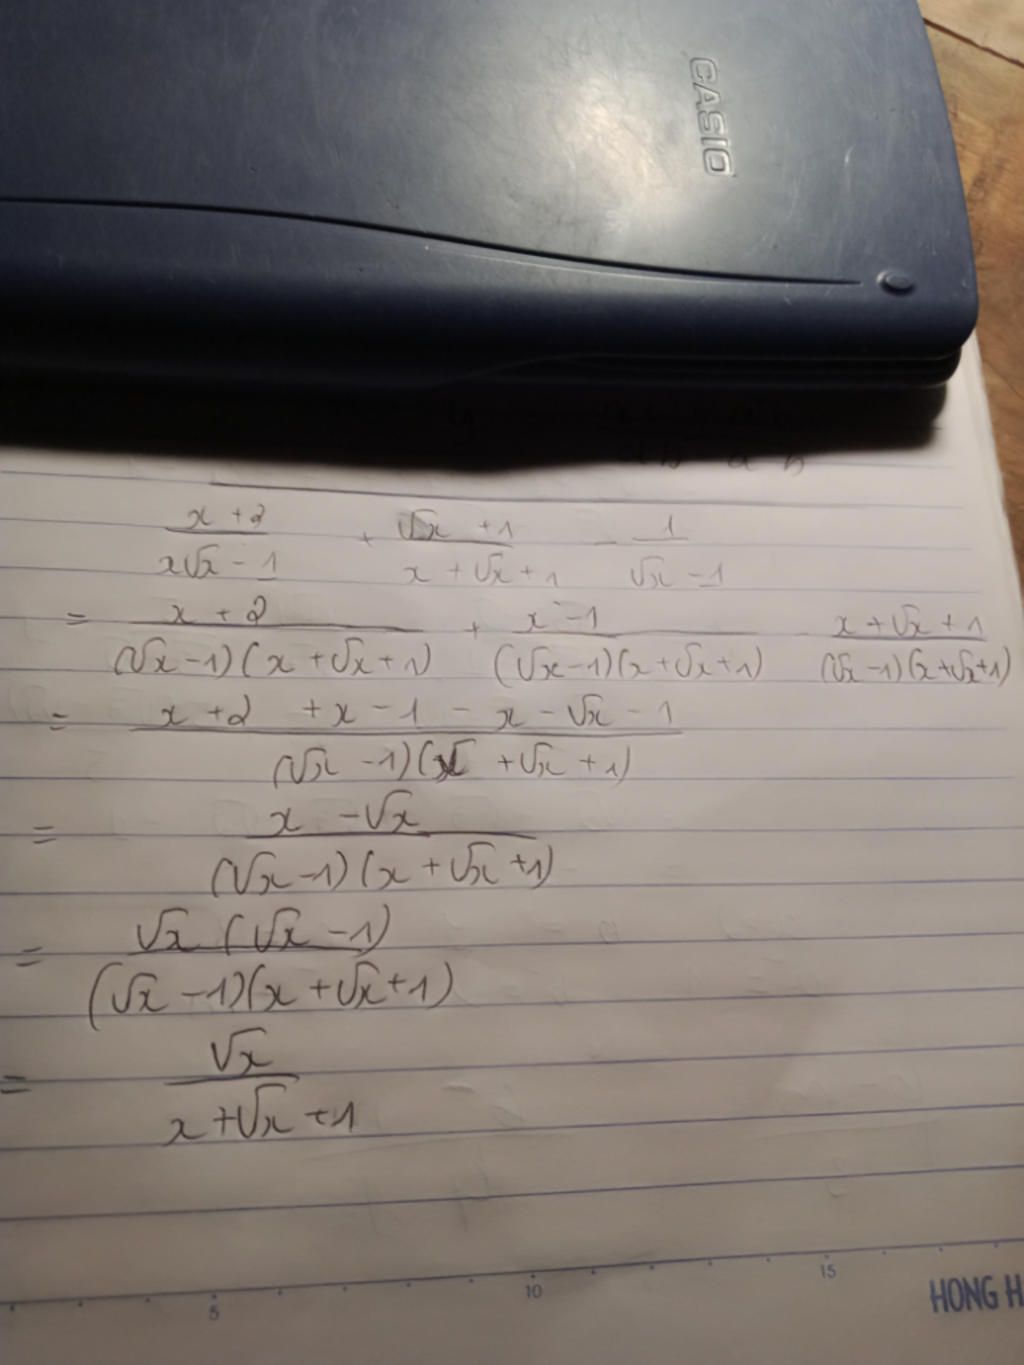 CASIO
(x + 2)/(x√x - 1) + (√x + 1)/(x + √x + 1) - 1/(√x - 1)
= (x + 2)/((√x - 1)(x + √x + 1)) + (x - 1)/((√x - 1)(x + √x + 1)) - (x + √x + 1)/((√x - 1)(x + √x + 1))
= (x + 2 + x - 1 - x - √x - 1)/((√x - 1)(x + √x + 1))
= (x - √x)/((√x - 1)(x + √x + 1))
= (√x (√x - 1))/((√x - 1)(x + √x + 1))
= √x/(x + √x + 1)
5 10 15
HONG H